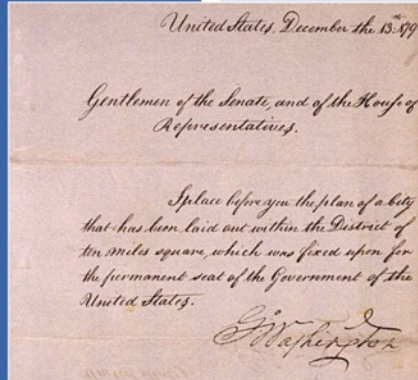 United States, December the 13:
Gentlemen of the Senate, and of the House of
Representatives.
I place before you the plan of a City
that has been laid out within the District of
ten miles square, which was fixed upon for
the permanent seat of the Government of the
United States.
G:Washington